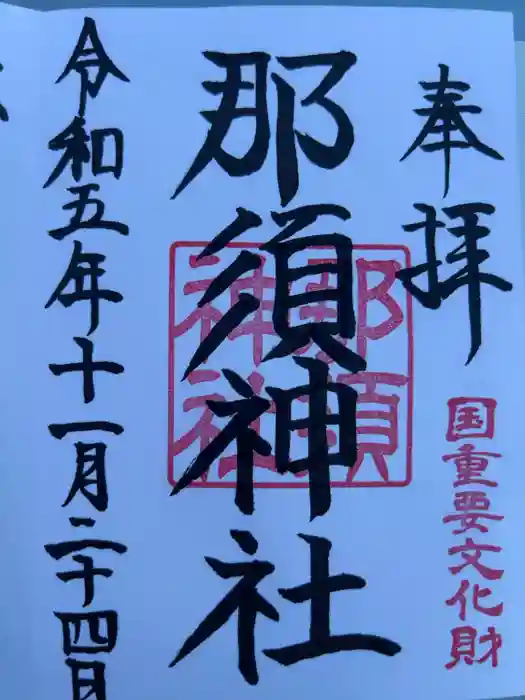 奉拝
国重要文化財
那須神社
那須
神社
令和五年十一月二十四日